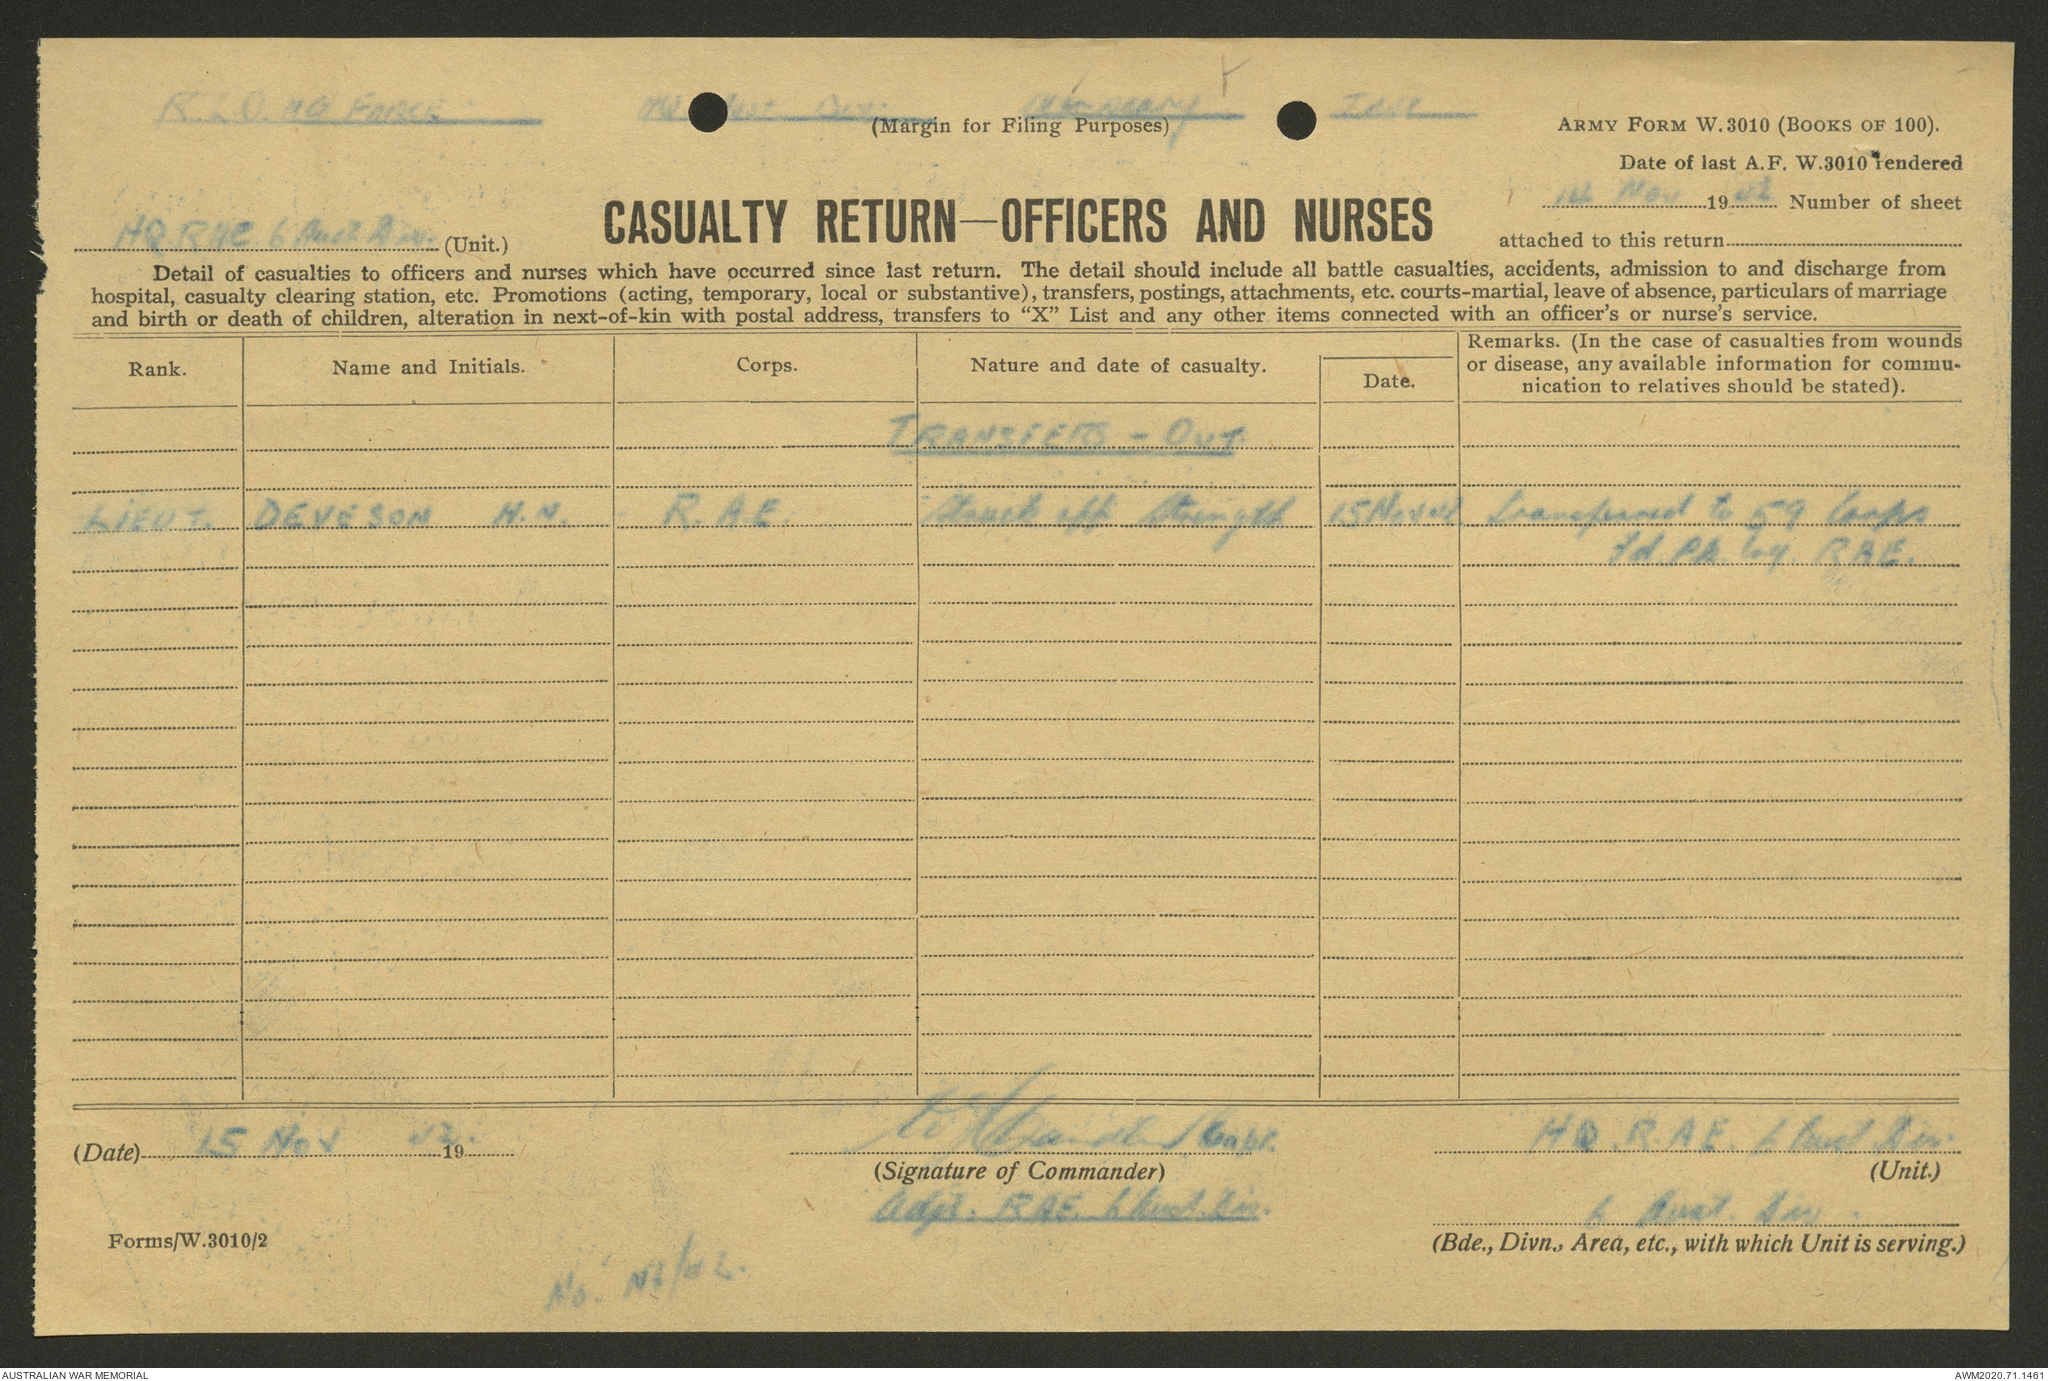 R.L.O. NG FORCE
(Margin for Filing Purposes)
ARMY FORM W.3010 (BOOKS OF 100).
Date of last A.F. W.3010 rendered
14 Nov 1942 Number of sheet
attached to this return
HQ RAE 6 Aust Div. (Unit.)
CASUALTY RETURN—OFFICERS AND NURSES
Detail of casualties to officers and nurses which have occurred since last return. The detail should include all battle casualties, accidents, admission to and discharge from
hospital, casualty clearing station, etc. Promotions (acting, temporary, local or substantive), transfers, postings, attachments, etc. courts-martial, leave of absence, particulars of marriage
and birth or death of children, alteration in next-of-kin with postal address, transfers to “X” List and any other items connected with an officer’s or nurse’s service.
Rank.
Name and Initials.
Corps.
Nature and date of casualty.
Date.
Remarks. (In the case of casualties from wounds
or disease, any available information for commu-
nication to relatives should be stated).
TRANSFERS - OUT
LIEUT. DEVESON H.N. R.A.E. Struck off Strength 15 Nov 42 Transferred to 59 Corps
Fd. Pk. Coy. RAE.
(Date) 15 Nov 42. 19
Capt.
(Signature of Commander)
Adjt. RAE. 6 Aust. Div.
HQ. R.A.E. 6 Aust Div.
(Unit.)
6 Aust. Div.
(Bde., Divn., Area, etc., with which Unit is serving.)
Forms/W.3010/2
No.
AUSTRALIAN WAR MEMORIAL
AWM2020.71.1461